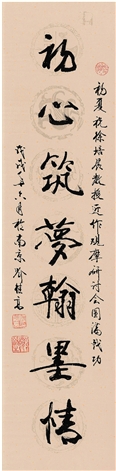 初心筑夢翰墨情
初夏祝徐培晨教授近作观摩研讨会圆满成功
戊戌年六月於南京